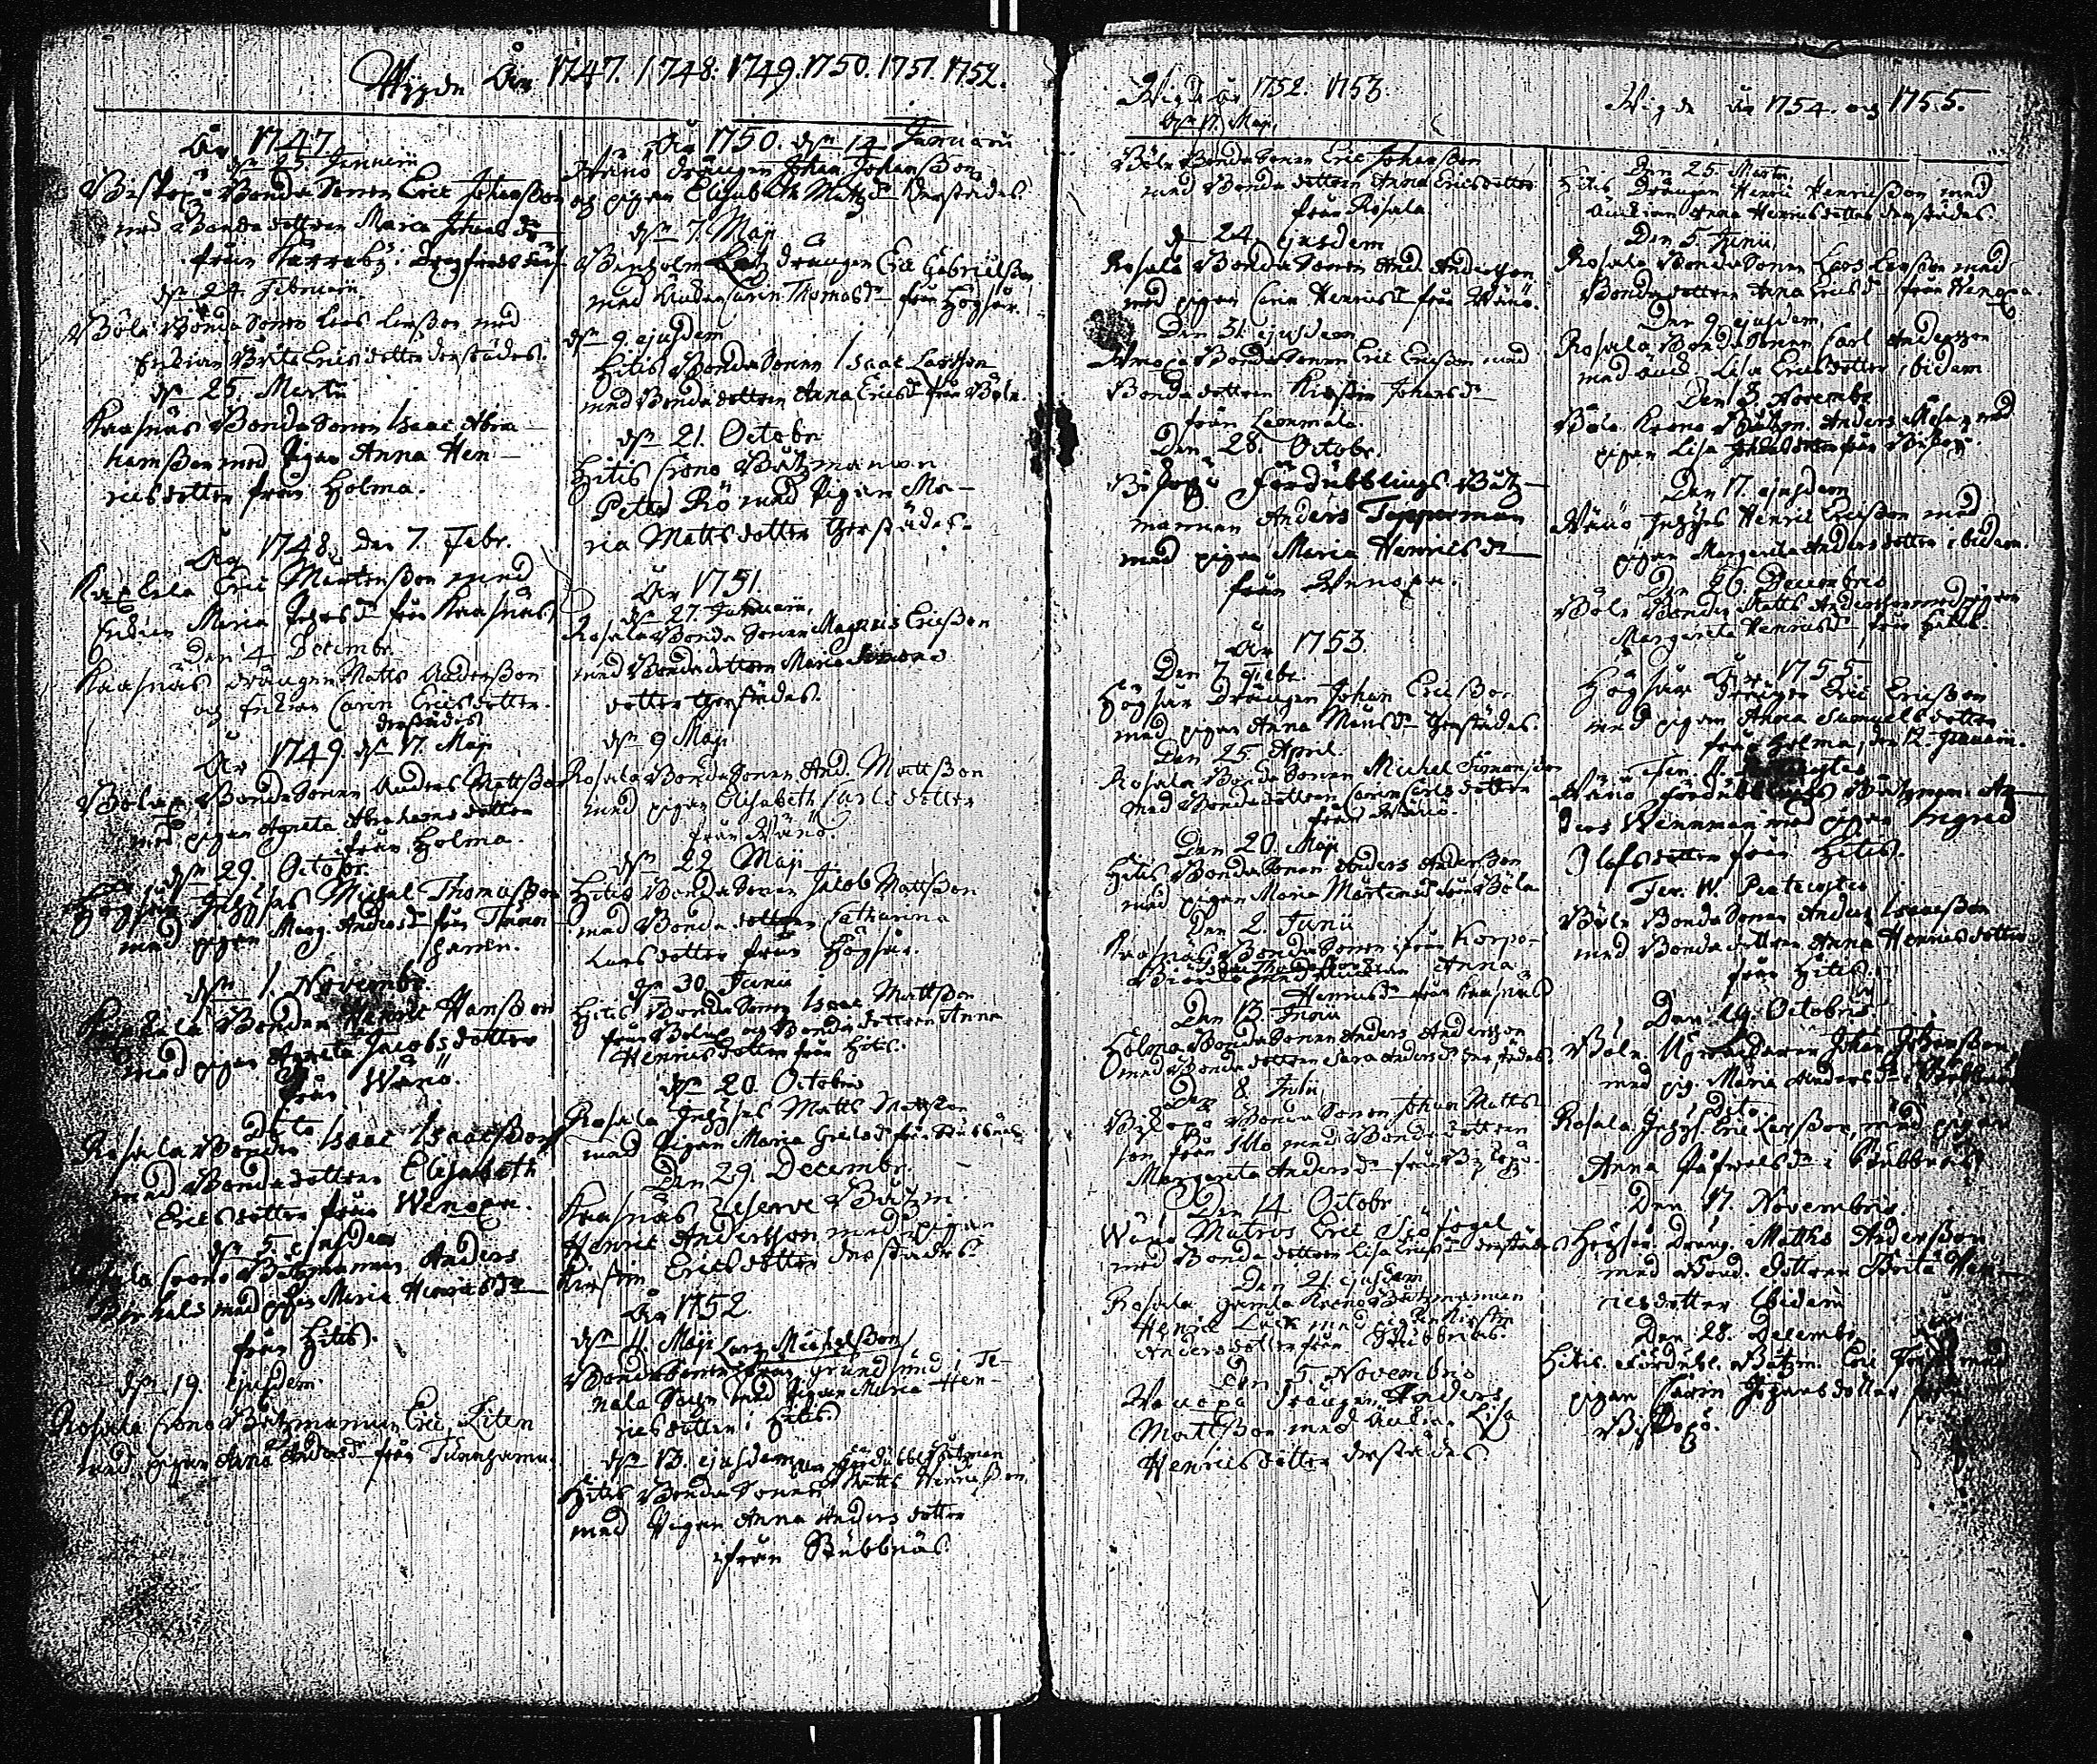 Wigde År 1747. 1748. 1749. 1750. 1751. 1752.
År 1747.
dn 25. Januarii
Biskopö Bonda Sonen Eric Johansson
med Bonda dottren Maria Johans dr
från Kärraby i
dn 24. Februarii
Böle Bonda Sonen Lars Larsson med
Enkian Brita Erics dotter derstädes.
dn 25. Martii
Kasnäs Bonda Sonen Isaac Abra-
hamsson med Pigan Anna Hen-
ricsdotter från Holma.
År 1748. den 7. Febr.
Eric Mårtensson med
Enkian Maria från Kasnäs
Den 4 Decembr.
Kasnäs drängen Matts Andersson
og Enkian Carin Ericsdotter
derstädes
År 1749. dn 17. Maji
Böle Bonda Sonen Anders Mattsson
med pigan Agneta Abrahams dotter
från Holma.
dn 29. Octobr.
Högsar Michel Thomasson
med pigan Marg. Anders dr från
hamn.
dn 1. Novembr.
Bonden Henric Hansson
med pigan Agneta Jacobsdotter
från Wänö.
Dito
Rosala Bonden Isaac Isaacsson
med Bonda dottren Elisabeth
Erics dotter från Wenoxa.
dn 5. ejusdem
Rosala Crono Båtzmannen Anders
med pigan Maria Henrics dr
från Hitis.
dn 19. ejusdem
Rosala Crono Båtzmannen Eric Liten
med pigan Anna Anders dr från
År 1750. dn 14. Januarii
Wänö drängen Johan Johansson
og pigan Elisabeth Matz dr derstädes
dn 7. Maji
drängen Eric Gabrielsson
med Enkian Carin Thomas dr från Högsar.
dn 9. ejusdem
Hitis Bonda Sonen Isaac Larsson
med Bonda dottren Anna Erics dr från Böle.
dn 21. Octobr.
Hitis Crono Båtzmannen
Peter Rö med Pigan Ma-
ria Matts dotter derstädes.
År 1751.
dn 27. Januarii,
Rosala Bonda Sonen Magnus Ericsson
med Bonda dottren Maria Simons
dotter derstädes.
dn 9 Maji
Rosala Bonda Sonen And. Mattsson
med pigan Elisabeth Carls dotter
från Wänö.
dn 22 Maji
Hitis Bonda Sonen Jacob Mattsson
med Bonda dottren Catharina
Lars dotter från Högsar.
dn 30. Junii
Hitis Bonda Sonen Isaac Mattsson
från Böle og Bonda dottren Anna
Henrics dotter från Hitis.
dn 20. Octobris
Rosala Matts Mattsson
med Pigan Maria Grels dr från Stubbnäs
Den 29. Decembr.
Kasnäs Reserve Båtzm.
Henric Andersson med pigan
Kirstin Ericsdotter derstädes.
År 1752
dn 4. Maji Lars Michelsson
Bonda Sonen från grundsund i Te-
nala Sokn med Pigan Maria Hen-
rics dotter i Hitis.
dn 13. ejusdem fördubbl. Båtzman
Hitis Bonda Sonen Matts Henricsson
med Pigan Anna Anders dotter
ifrån Stubbnäs.
Wigde år 1752. 1753.
dn 17. Maji.
Böle Bonda Sonen Eric Johansson
med Bonda dottren Anna Ericsdotter
från Rosala.
d 24. ejusdem
Rosala Bonda Sonen And. Andersson
med pigan Carin Henrics dr från Wänö.
Den 31. ejusdem
Wenoxa Bonda Sonen Eric Ericsson med
Bonda dottren Kirstin Johans dr
från
Den 28. Octobr.
Biskopö fördubblings Båtz-
mannen Anders Tapperman
med pigan Maria Henrics dr
från Wenoxa.
År 1753.
Den 7. Febr.
Högsar Drängen Johan Ericsson
med pigan Anna Måns dr derstädes.
Den 25. April.
Rosala Bonda Sonen Michel Simonsson
med Bonda dottren Carin Carls dotter
från Wänö.
Den 20. Maji
Hitis Bonda Sonen Anders Andersson
med pigan Maria Mårtens dr från Böle
Den 2. Junii
Kasnäs Bonda Sonen ifrån Korpo-
Anna
Henrics dr från Kasnäs
Den 13. Junii
Holma Bonda Sonen Anders Andersson
med Bonda dottren Sara Anders dr derstädes.
Den 8. Julii
Biskopö Bonda Sonen Johan Matts
son från Mo med Bonda dottren
Margareta Anders dr från Biskopö.
Den 14 Octobr
Wänö Matros Eric Siöfogel
med Bonda dottren Lisa Erics dr derstädes
Den 21. ejusdem
Rosala gamla Crono Båtzmannen
Henric med pigan Kirstin
Andersdotter från Stubbnäs.
Den 5 Novembris
Wenoxa Drängen Anders
Mattsson med Änkian Lisa
Henrics dotter derstädes.
Wigde år 1754. og 1755.
Den 25. Martii,
Hitis Drängen Henric Henricsson med
Änkian Anna Henricsdotter derstädes.
Den 5. Junii,
Rosala Bonda Sonen Lars Larsson med
Bonda dottren Anna Erics dr från Wenoxa.
Den 9. ejusdem,
Rosala Bonda Sonen Carl Andersson
med Lisa Ericsdotter ibidem
Den 3. Novembr.
Böle Krono Båtzm. Anders med
pigan Lisa från
Den 17. ejusdem
Wänö Henric Ericsson med
pigan Margareta Anders dotter ibidem.
Den 26. Decembris
Böle Bonden Matts Andersson med pigan
Margareta Henrics dr från Hitis.
År 1755
Högsar Drängen Eric Ericsson
med pigan Anna Samuels dotter
från Holma, den 12. Januarii.
Wänö fördubblings Båtzman An-
ders Wennman med pigan Ingred
Olofs dotter från Hitis.
Fer. IV. Pentecostes
Böle Bonda Sonen Anders Isaacsson
med Bonda dottren Anna Henricsdotter
från Hitis.
Den 19. Octobris
Böle Johan Johansson
med pig. Maria Anders dr i Stubbnäs
Dito
Rosala Eric Larsson, med pigan
Anna i Stubbnäs
Den 17. Novembris.
Högsar. Dräng. Matths Andersson
med Bond. dottren Brita Hen-
rics dotter ibidem
Den 28. Decembr.
Hitis. Fördubl. Båtzm. Eric med
pigan Carin Johansdotter från
Biskopö.